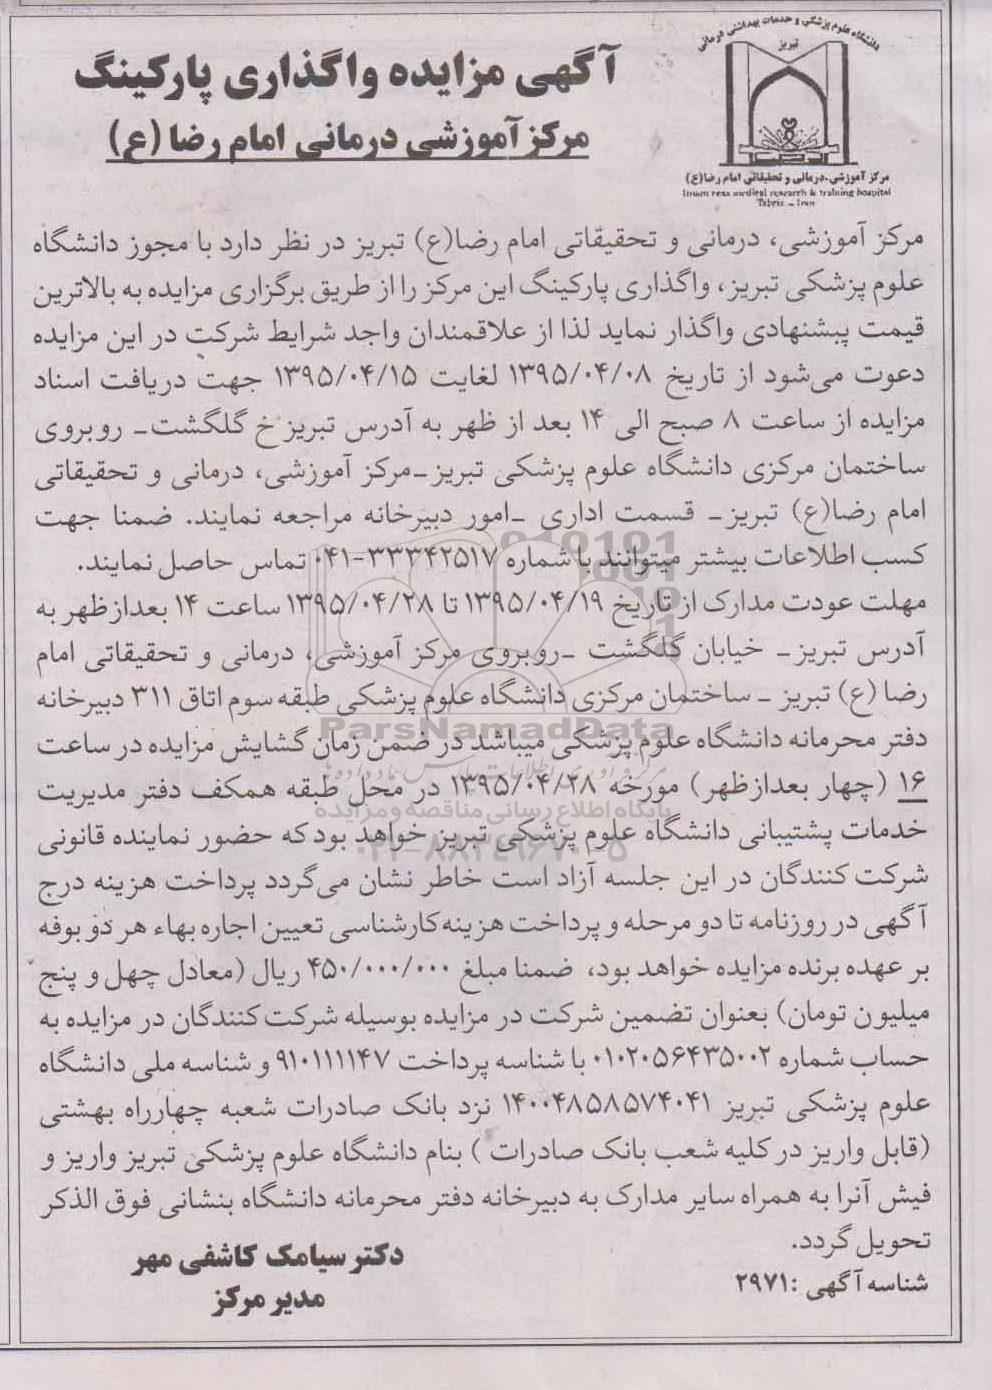 دانشگاه علوم پزشکی و خدمات بهداشتی درمانی
تبریز
مرکز آموزشی،درمانی و تحقیقاتی امام رضا(ع)
Imam reza medical research & training hospital
Tabriz - Iran
آگهی مزایده واگذاری پارکینگ
مرکز آموزشی درمانی امام رضا (ع)
مرکز آموزشی، درمانی و تحقیقاتی امام رضا(ع) تبریز در نظر دارد با مجوز دانشگاه
علوم پزشکی تبریز، واگذاری پارکینگ این مرکز را از طریق برگزاری مزایده به بالاترین
قیمت پیشنهادی واگذار نماید لذا از علاقمندان واجد شرایط شرکت در این مزایده
دعوت می‌شود از تاریخ ۱۳۹۵/۰۴/۰۸ لغایت ۱۳۹۵/۰۴/۱۵ جهت دریافت اسناد
مزایده از ساعت ۸ صبح الی ۱۴ بعد از ظهر به آدرس تبریز خ گلگشت- روبروی
ساختمان مرکزی دانشگاه علوم پزشکی تبریز-مرکز آموزشی، درمانی و تحقیقاتی
امام رضا(ع) تبریز- قسمت اداری -امور دبیرخانه مراجعه نمایند. ضمنا جهت
کسب اطلاعات بیشتر میتوانند با شماره ۳۳۳۴۲۵۱۷-۰۴۱ تماس حاصل نمایند.
مهلت عودت مدارک از تاریخ ۱۳۹۵/۰۴/۱۹ تا ۱۳۹۵/۰۴/۲۸ ساعت ۱۴ بعدازظهر به
آدرس تبریز- خیابان گلگشت -روبروی مرکز آموزشی، درمانی و تحقیقاتی امام
رضا (ع) تبریز - ساختمان مرکزی دانشگاه علوم پزشکی طبقه سوم اتاق ۳۱۱ دبیرخانه
دفتر محرمانه دانشگاه علوم پزشکی میباشد در ضمن زمان گشایش مزایده در ساعت
۱۶ (چهار بعدازظهر) مورخه ۱۳۹۵/۰۴/۲۸ در محل طبقه همکف دفتر مدیریت
خدمات پشتیبانی دانشگاه علوم پزشکی تبریز خواهد بود که حضور نماینده قانونی
شرکت کنندگان در این جلسه آزاد است خاطر نشان می‌گردد پرداخت هزینه درج
آگهی در روزنامه تا دو مرحله و پرداخت هزینه کارشناسی تعیین اجاره بهاء هر دو بوفه
بر عهده برنده مزایده خواهد بود، ضمنا مبلغ ۴۵۰/۰۰۰/۰۰۰ ریال (معادل چهل و پنج
میلیون تومان) بعنوان تضمین شرکت در مزایده بوسیله شرکت کنندگان در مزایده به
حساب شماره ۰۱۰۲۰۵۶۴۳۵۰۰۲ با شناسه پرداخت ۹۱۰۱۱۱۱۴۷ و شناسه ملی دانشگاه
علوم پزشکی تبریز ۱۴۰۰۴۸۵۸۵۷۴۰۴۱ نزد بانک صادرات شعبه چهارراه بهشتی
(قابل واریز در کلیه شعب بانک صادرات ) بنام دانشگاه علوم پزشکی تبریز واریز و
فیش آنرا به همراه سایر مدارک به دبیرخانه دفتر محرمانه دانشگاه بنشانی فوق الذکر
تحویل گردد.
دکتر سیامک کاشفی مهر
مدیر مرکز
شناسه آگهی :۲۹۷۱
ParsNamadData
پایگاه اطلاع رسانی مناقصه و مزایده